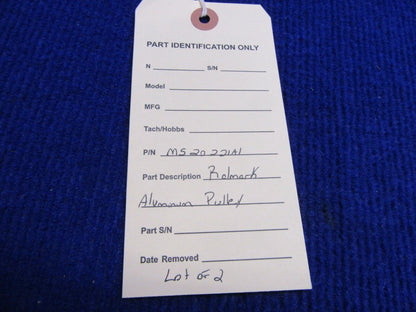 PART IDENTIFICATION ONLY
N S/N
Model
MFG
Tach/Hobbs
P/N MS20221A1
Part Description Rolmark
Aluminum Pulley
Part S/N
Date Removed
Lot of 2